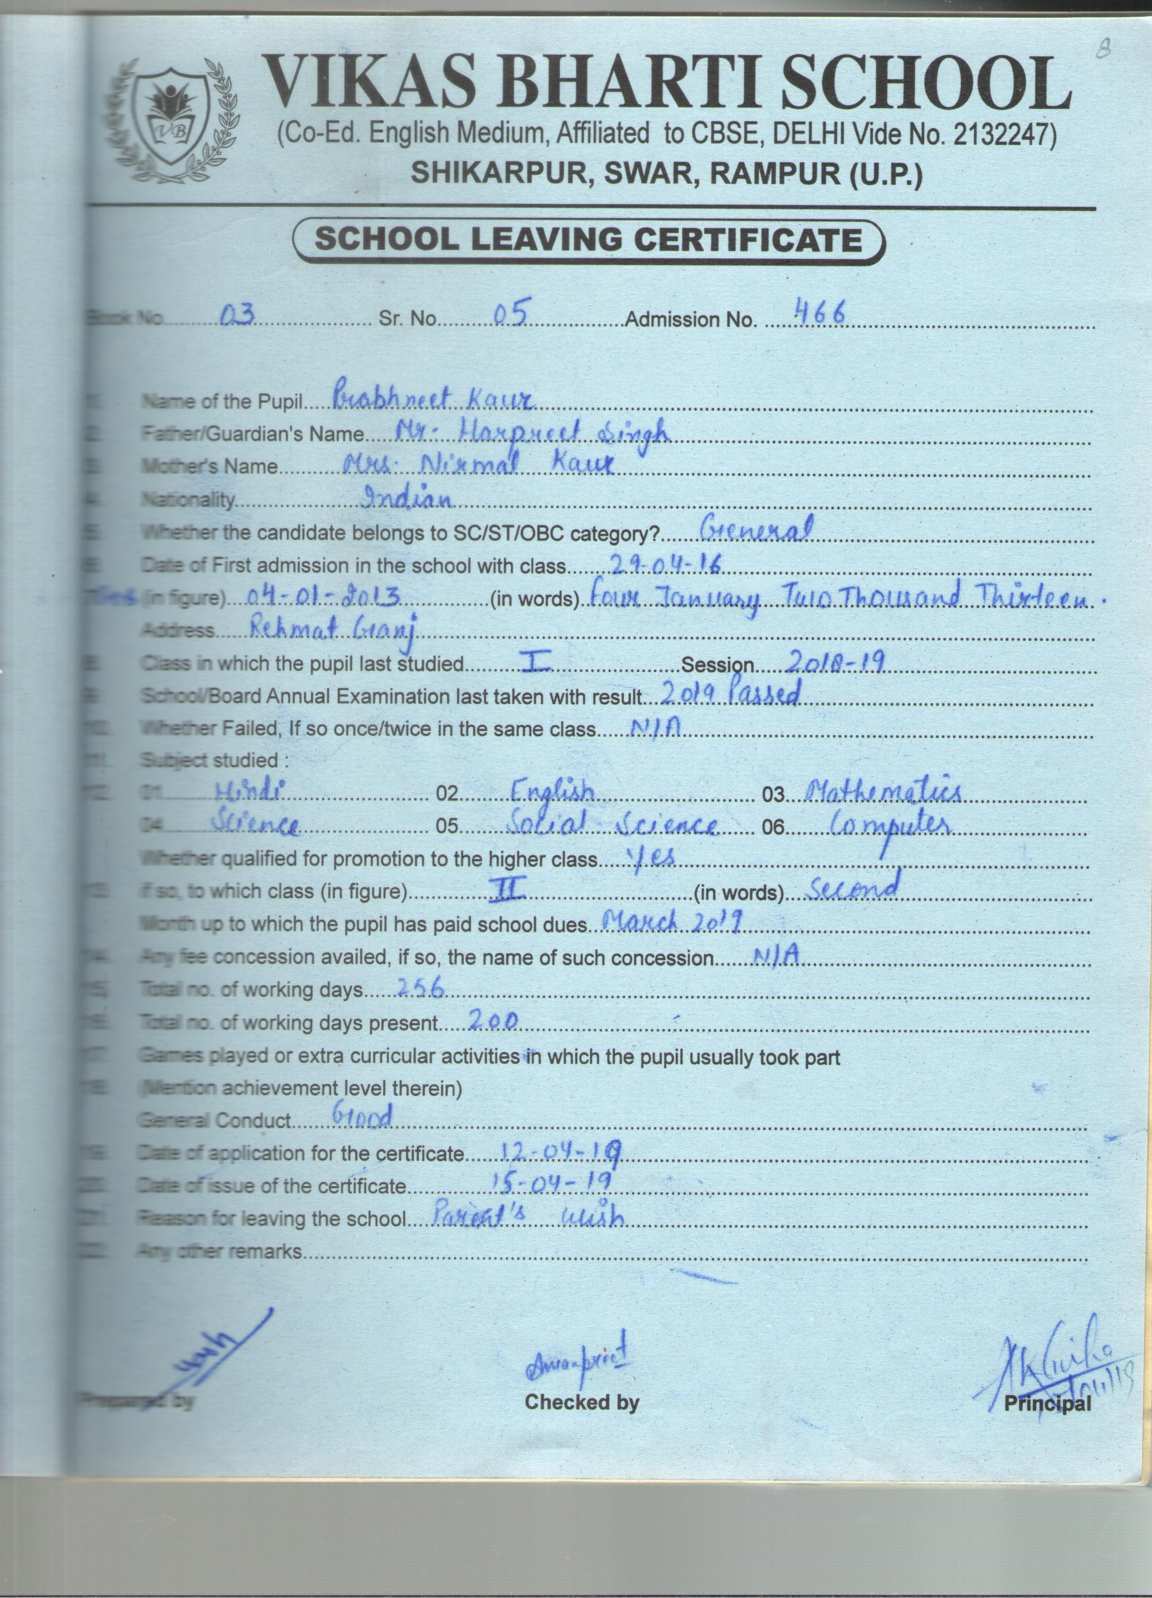 8
VIKAS BHARTI SCHOOL
VB
(Co-Ed. English Medium, Affiliated to CBSE, DELHI Vide No. 2132247)
SHIKARPUR, SWAR, RAMPUR (U.P.)
SCHOOL LEAVING CERTIFICATE
Book No. 03 Sr. No. 05 Admission No. 466
Name of the Pupil Prabhneet Kaur
Father/Guardian's Name Mr. Harpreet Singh
Mother's Name Mrs. Nirmal Kaur
Nationality Indian
Whether the candidate belongs to SC/ST/OBC category? General
Date of First admission in the school with class 29-04-16
(in figure) 04-01-2013 (in words) Four January Two Thousand Thirteen.
Address Rehmat Ganj
Class in which the pupil last studied I Session 2018-19
School/Board Annual Examination last taken with result 2019 Passed
Whether Failed, If so once/twice in the same class N/A
Subject studied :
01 Hindi 02 English 03 Mathematics
04 Science 05 Social Science 06 Computer
Whether qualified for promotion to the higher class Yes
if so, to which class (in figure) II (in words) Second
Month up to which the pupil has paid school dues March 2019
Any fee concession availed, if so, the name of such concession N/A
Total no. of working days 256
Total no. of working days present 200
Games played or extra curricular activities in which the pupil usually took part
(Mention achievement level therein)
General Conduct Good
Date of application for the certificate 12-04-19
Date of issue of the certificate 15-04-19
Reason for leaving the school Parent's wish
Any other remarks
Amanpreet
Prepared by Checked by Principal